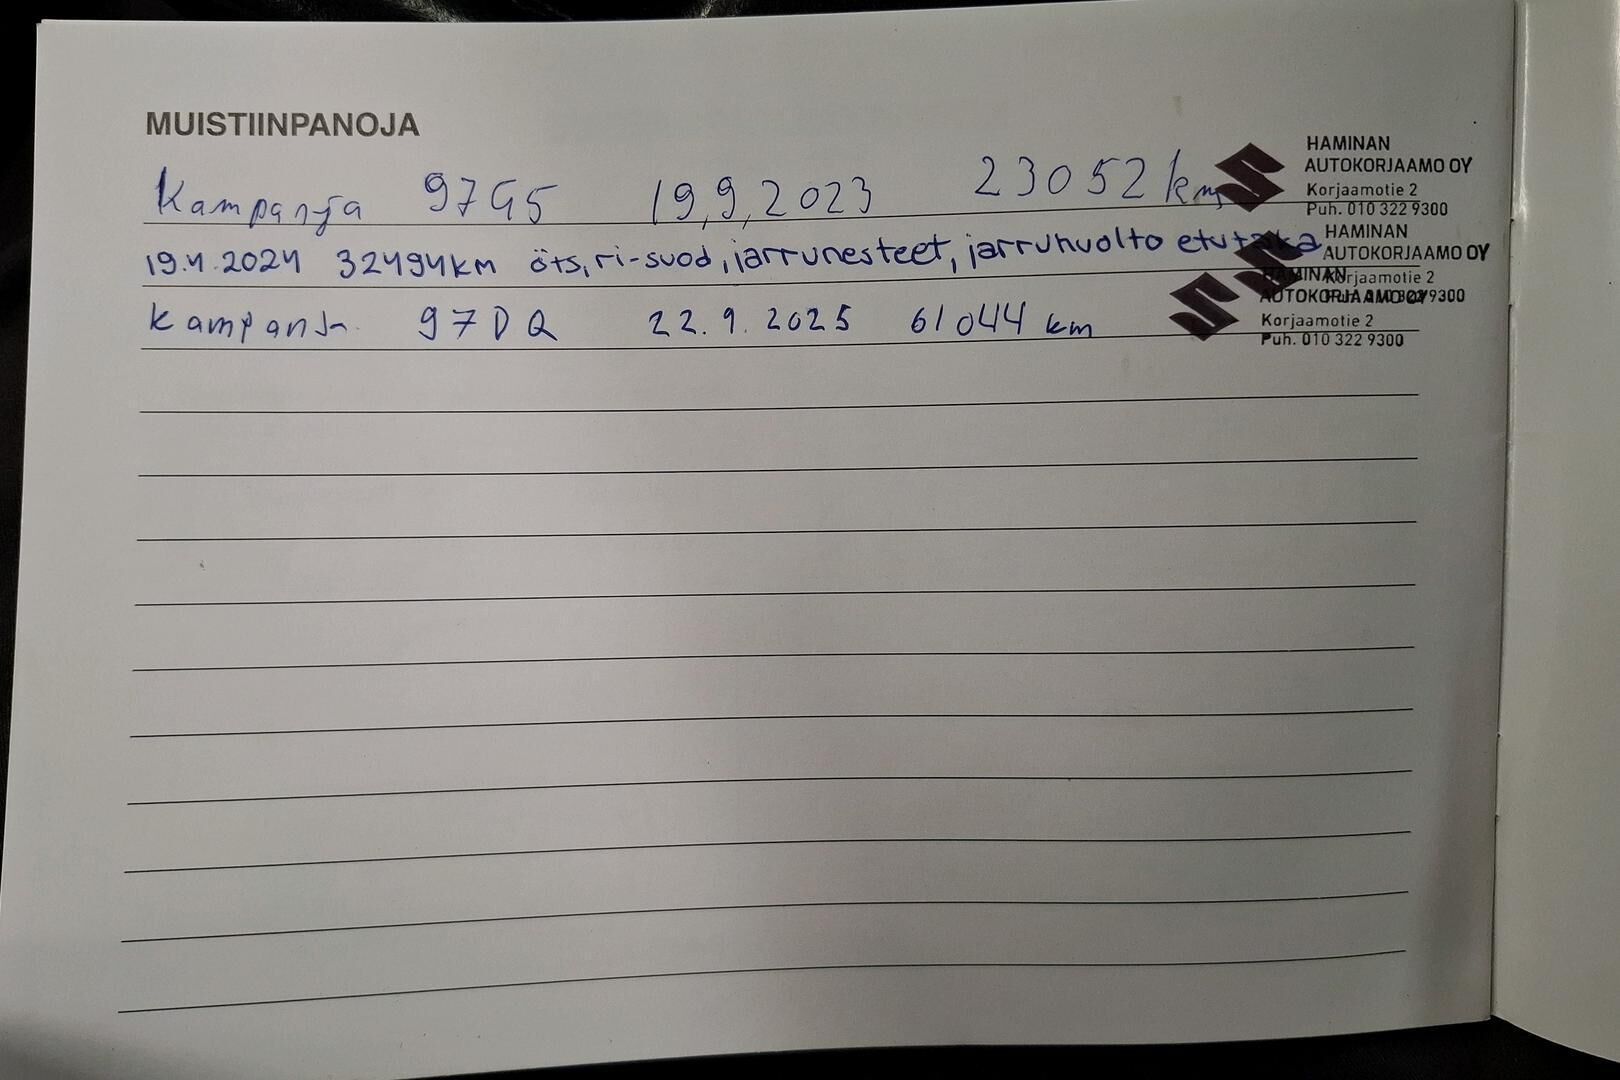 MUISTIINPANOJA
Kampanja 97G5 19,9,2023 23052 km
HAMINAN
AUTOKORJAAMO OY
Korjaamotie 2
Puh. 010 322 9300
19.4.2024 32494km öts, ri-suod, jarrunesteet, jarruhuolto etu taka
HAMINAN
AUTOKORJAAMO OY
Korjaamotie 2
Puh. 010 322 9300
Kampanja 97DQ 22.9.2025 61044 km
HAMINAN
AUTOKORJAAMO OY
Korjaamotie 2
Puh. 010 322 9300